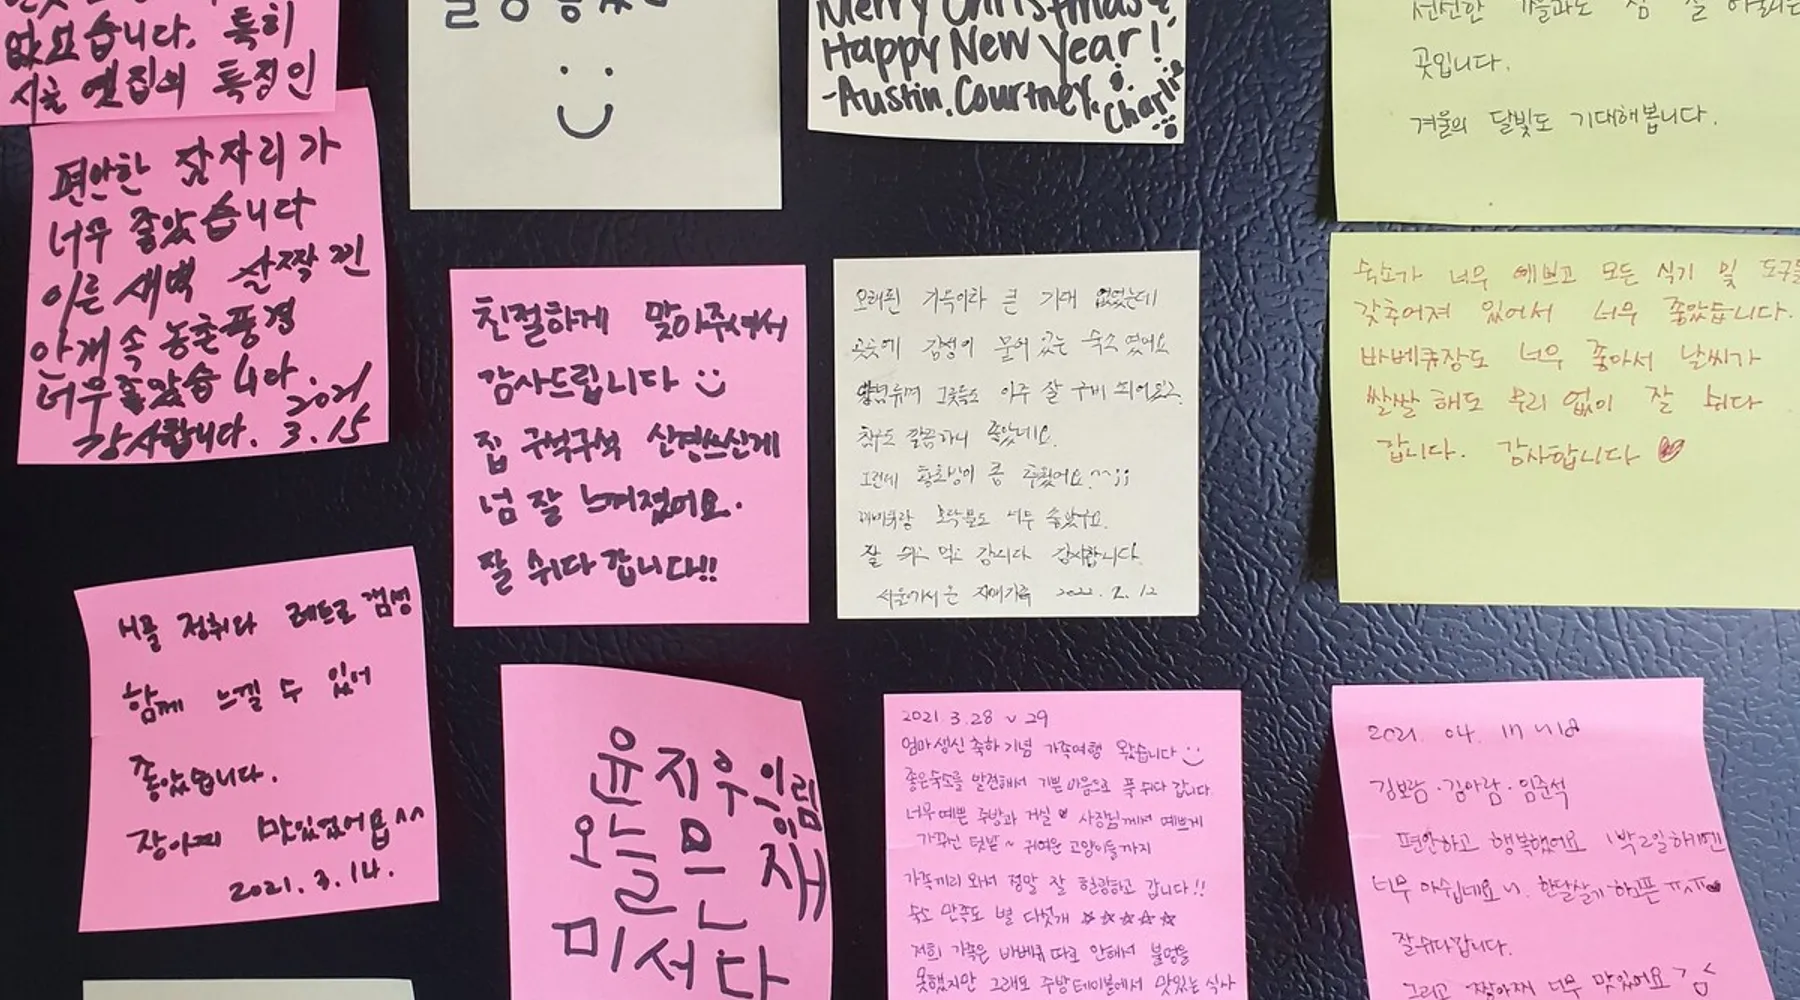 없었습니다. 특히
시골 옛집의 특징인
편안한 잠자리가
너무 좋았습니다
이른 새벽 살짝 낀
안개 속 농촌풍경
너무좋았습니다.
감사합니다. 2021
3.15
Merry Christmas &
Happy New Year!
-Austin, Courtney, Charlie
곳입니다.
겨울의 달빛도 기대해봅니다.
친절하게 맞아주셔서
감사드립니다
집 구석구석 신경쓰신게
넘 잘 느껴졌어요.
잘 쉬다 갑니다!!
오래된 가옥이라 큰 기대 없었는데
곳곳에 감성이 묻어 있는 숙소였어요
아주 잘 구비 되어있고.
침구도 깔끔하니 좋았네요.
그런데 좀 추웠어요.^^;;
바비큐랑 너무 좋았구요.
잘 쉬고 먹고 갑니다 감사합니다.
서울에서 온 자매가족 2022. 2. 12
숙소가 너무 예쁘고 모든 식기 및 도구들
갖추어져 있어서 너무 좋았습니다.
바베큐장도 너무 좋아서 날씨가
쌀쌀해도 무리 없이 잘 쉬다
갑니다. 감사합니다
시골 정취와 레트로 갬성
함께 느낄 수 있어
좋았습니다.
장아찌 맛있었어욥^^
2021. 3. 14.
윤지우의림
오늘은 재
미서다
2021. 3. 28 ~ 29
엄마생신 축하 기념 가족여행 왔습니다
좋은숙소를 발견해서 기쁜 마음으로 푹 쉬다 갑니다.
너무예쁜 주방과 거실 사장님께서 예쁘게
가꾸신 텃밭~ 귀여운 고양이들까지
가족끼리 와서 정말 잘 힐링하고 갑니다!!
숙소 만족도 별 다섯개 ☆☆☆☆☆
저희 가족은 바베큐 따로 안해서 불멍을
못했지만 그래도 주방테이블에서 맛있는 식사
2021. 04. 17 ~ 18
김보람·김아람·임준석
편안하고 행복했어요 1박2일하기엔
너무 아쉽네요 한달살기 하고픈 ㅠㅠ
잘쉬다갑니다.
그리고 짱아찌 너무 맛있어요